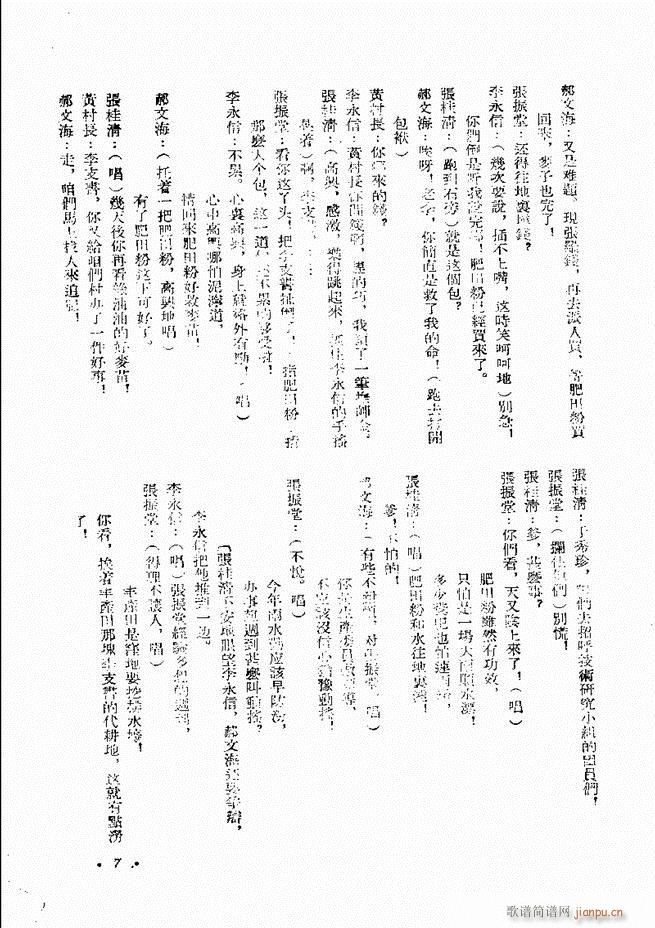 郝文海：又是难題。現張羅錢，再去派人買，等肥田粉買
回來，麥子也完了！
張振堂：还得往地裏
李永信：（幾次要説，插不上嘴，这時笑呵呵地）別急！
你們倒是听我説完哪！肥田粉已經買来了。
張桂清：（跑到右旁）就是这個包？
郝文海：唉呀！老李，你簡直是救了我的命！（跑去打開
包袱）
黃村長：你 來的錢？
李永信：黃村長 我 了一筆
張桂清：（高興，感激，樂得跳起來， 住李永信的手搖
着）啊，李支書
張振堂：看你这丫头，把李支書 肥田粉
那麽大个包，这一道 不累的够受啦！
李永信：不累。心裏高興，身上 格外有勁。（唱）
心中高興哪怕泥濘道，
揹回來肥田粉好救麥苗！
郝文海：（托着一把肥田粉，高興地唱）
有了肥田粉这下可好了。
張桂清：（唱）幾天後你再看綠油油的好麥苗！
黃村長：李支書，你又給咱們村办了一件好事！
郝文海：走，咱們馬上找人來追肥！
張桂清：于秀珍，咱們去招呼技術研究小組的団員們！
張振堂：（攔住他們）別慌！
張桂清：爹，甚麽事？
張振堂：你們看，天又陰上來了！（唱）
肥田粉雖然有功效，
只怕是一場大雨順水漂！
多少糞也怕連
張桂清：（唱）肥田粉和水往地裏
爹！不怕的！
郝文海：（有些不 ，对張振堂，唱）
你是生產委員
不应該沒信心猶豫動搖？
張振堂：（不悦。唱）
今年雨水 应該早防
办事 遇到甚麽叫動搖？
〔張桂清不安地眼望李永信，郝文海还要爭辯，
李永信把他推到一边。
李永信：（唱）張振堂經驗多想的週到，
張振堂：（得理不讓人，唱）
丰產田是窪地要地排水壕！
你看，挨着丰產田那塊李支書的代耕地，这就有點澇
了！
• 7 •
歌谱简谱网 jianpu.cn